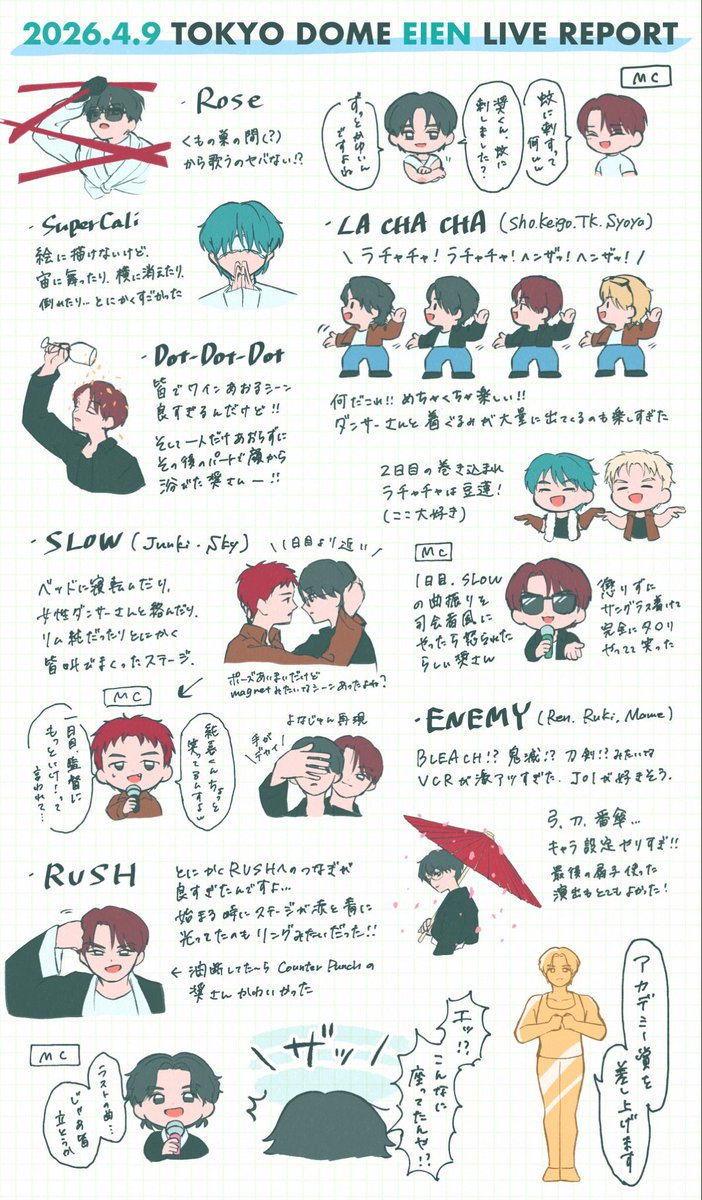 2026.4.9 TOKYO DOME EIEN LIVE REPORT
・Rose
くもの巣の間(?)
から歌うのヤバない!?
MC
蚊に刺すって
何ww
奨くん、蚊に
刺しました?
ずっとかゆいん
ですよね
・SuperCali
絵に描けないけど、
宙に舞ったり、横に消えたり、
倒れたり…とにかくすごかった
・LA CHA CHA (Sho.Keigo.Tk.Syoya)
\ ラチャチャ! ラチャチャ! ヘンザッ! ヘンザッ! /
何だこれ!! めちゃくちゃ楽しい!!
ダンサーさんと着ぐるみが大量に出てくるのも楽しすぎた
・Dot-Dot-Dot
皆でワインあおるシーン
良すぎるんだけど!!
そして一人だけあおらずに
その後のパートで顔から
浴びた奨さんー!!
2日目の巻き込まれ
ラチャチャは豆蓮!
(ここ大好き)
・SLOW (Junki.Sky)
\1日目より近い//
ベッドに寝転んだり、
女性ダンサーさんと絡んだり、
リム純だったりとにかく
皆叫びまくったステージ.
ポーズあいまいだけど
magnetみたいなシーンあったよね?
MC
1日目、SLOW
の曲振りを
司会者風に
やったら怒られた
らしい奨さん
懲りずに
サングラス着けて
完全にタモリ
やってて笑った
MC
純喜くんちょっと
笑ってるんすよw
一日目、監督に
もっといけ!って
言われて…
よなじゅん再現
手が
デカイ
・ENEMY (Ren.Ruki.Mame)
BLEACH!? 鬼滅!? 刀剣!? みたいな
VCRが激アツすぎた. JO1が好きそう.
弓、刀、番傘…
キャラ設定ヤリすぎ!!
最後の扇子使った
演出もとてもよかった!
・RUSH
とにかくRUSHへのつなぎが
良すぎたんですよ…
始まる時にステージが赤と青に
光ってたのもリングみたいだった!!
← 油断してた〜ら Counter Punchの
奨さんかわいかった
MC
ラストの曲…
じゃあ皆
立とうか
\ザッ/
エッ!?
こんなに
座ってたんや!?
アカデミー賞を
差し上げます